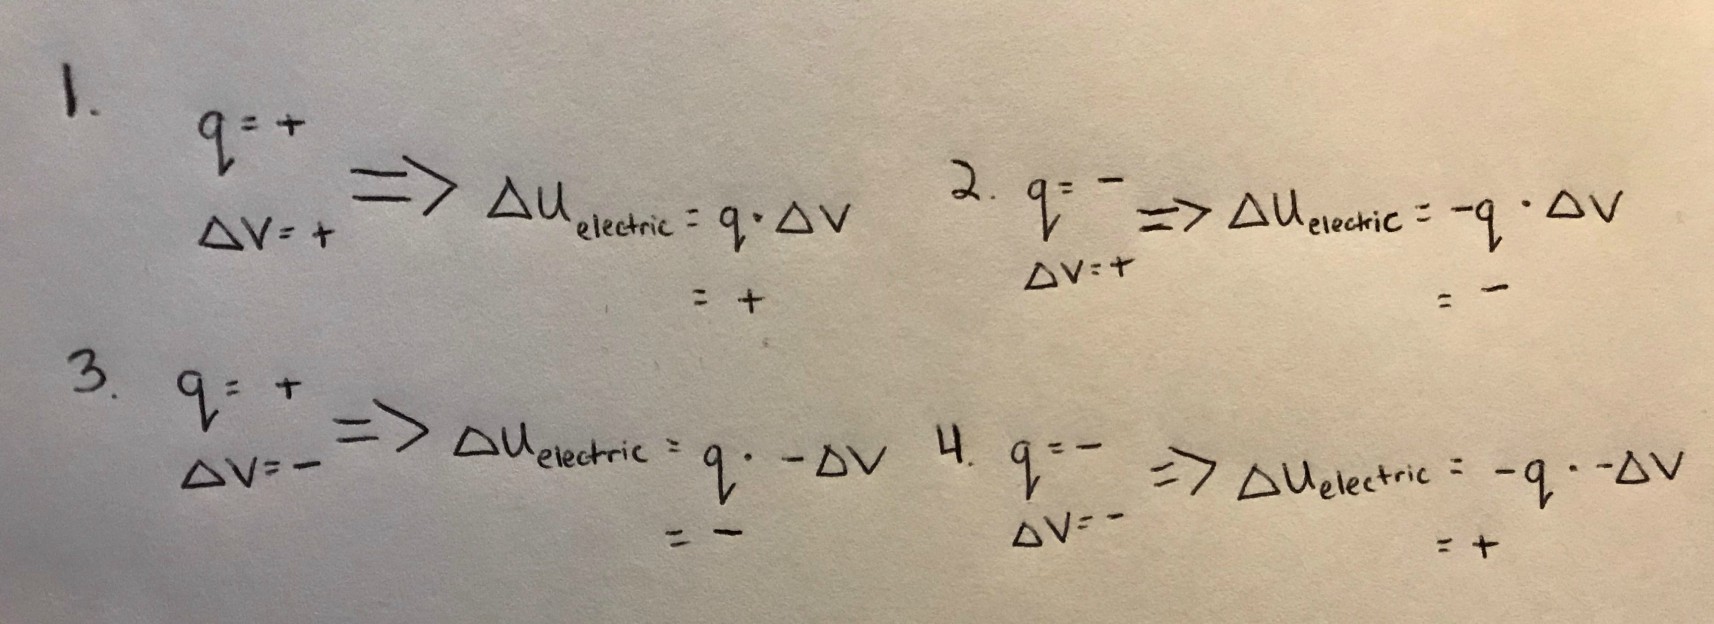 1.
q = +
ΔV = +
=> ΔU electric = q · ΔV
= +
2. q = -
ΔV = +
=> ΔU electric = -q · ΔV
= -
3. q = +
ΔV = -
=> ΔU electric = q · -ΔV
= -
4. q = -
ΔV = -
=> ΔU electric = -q · -ΔV
= +